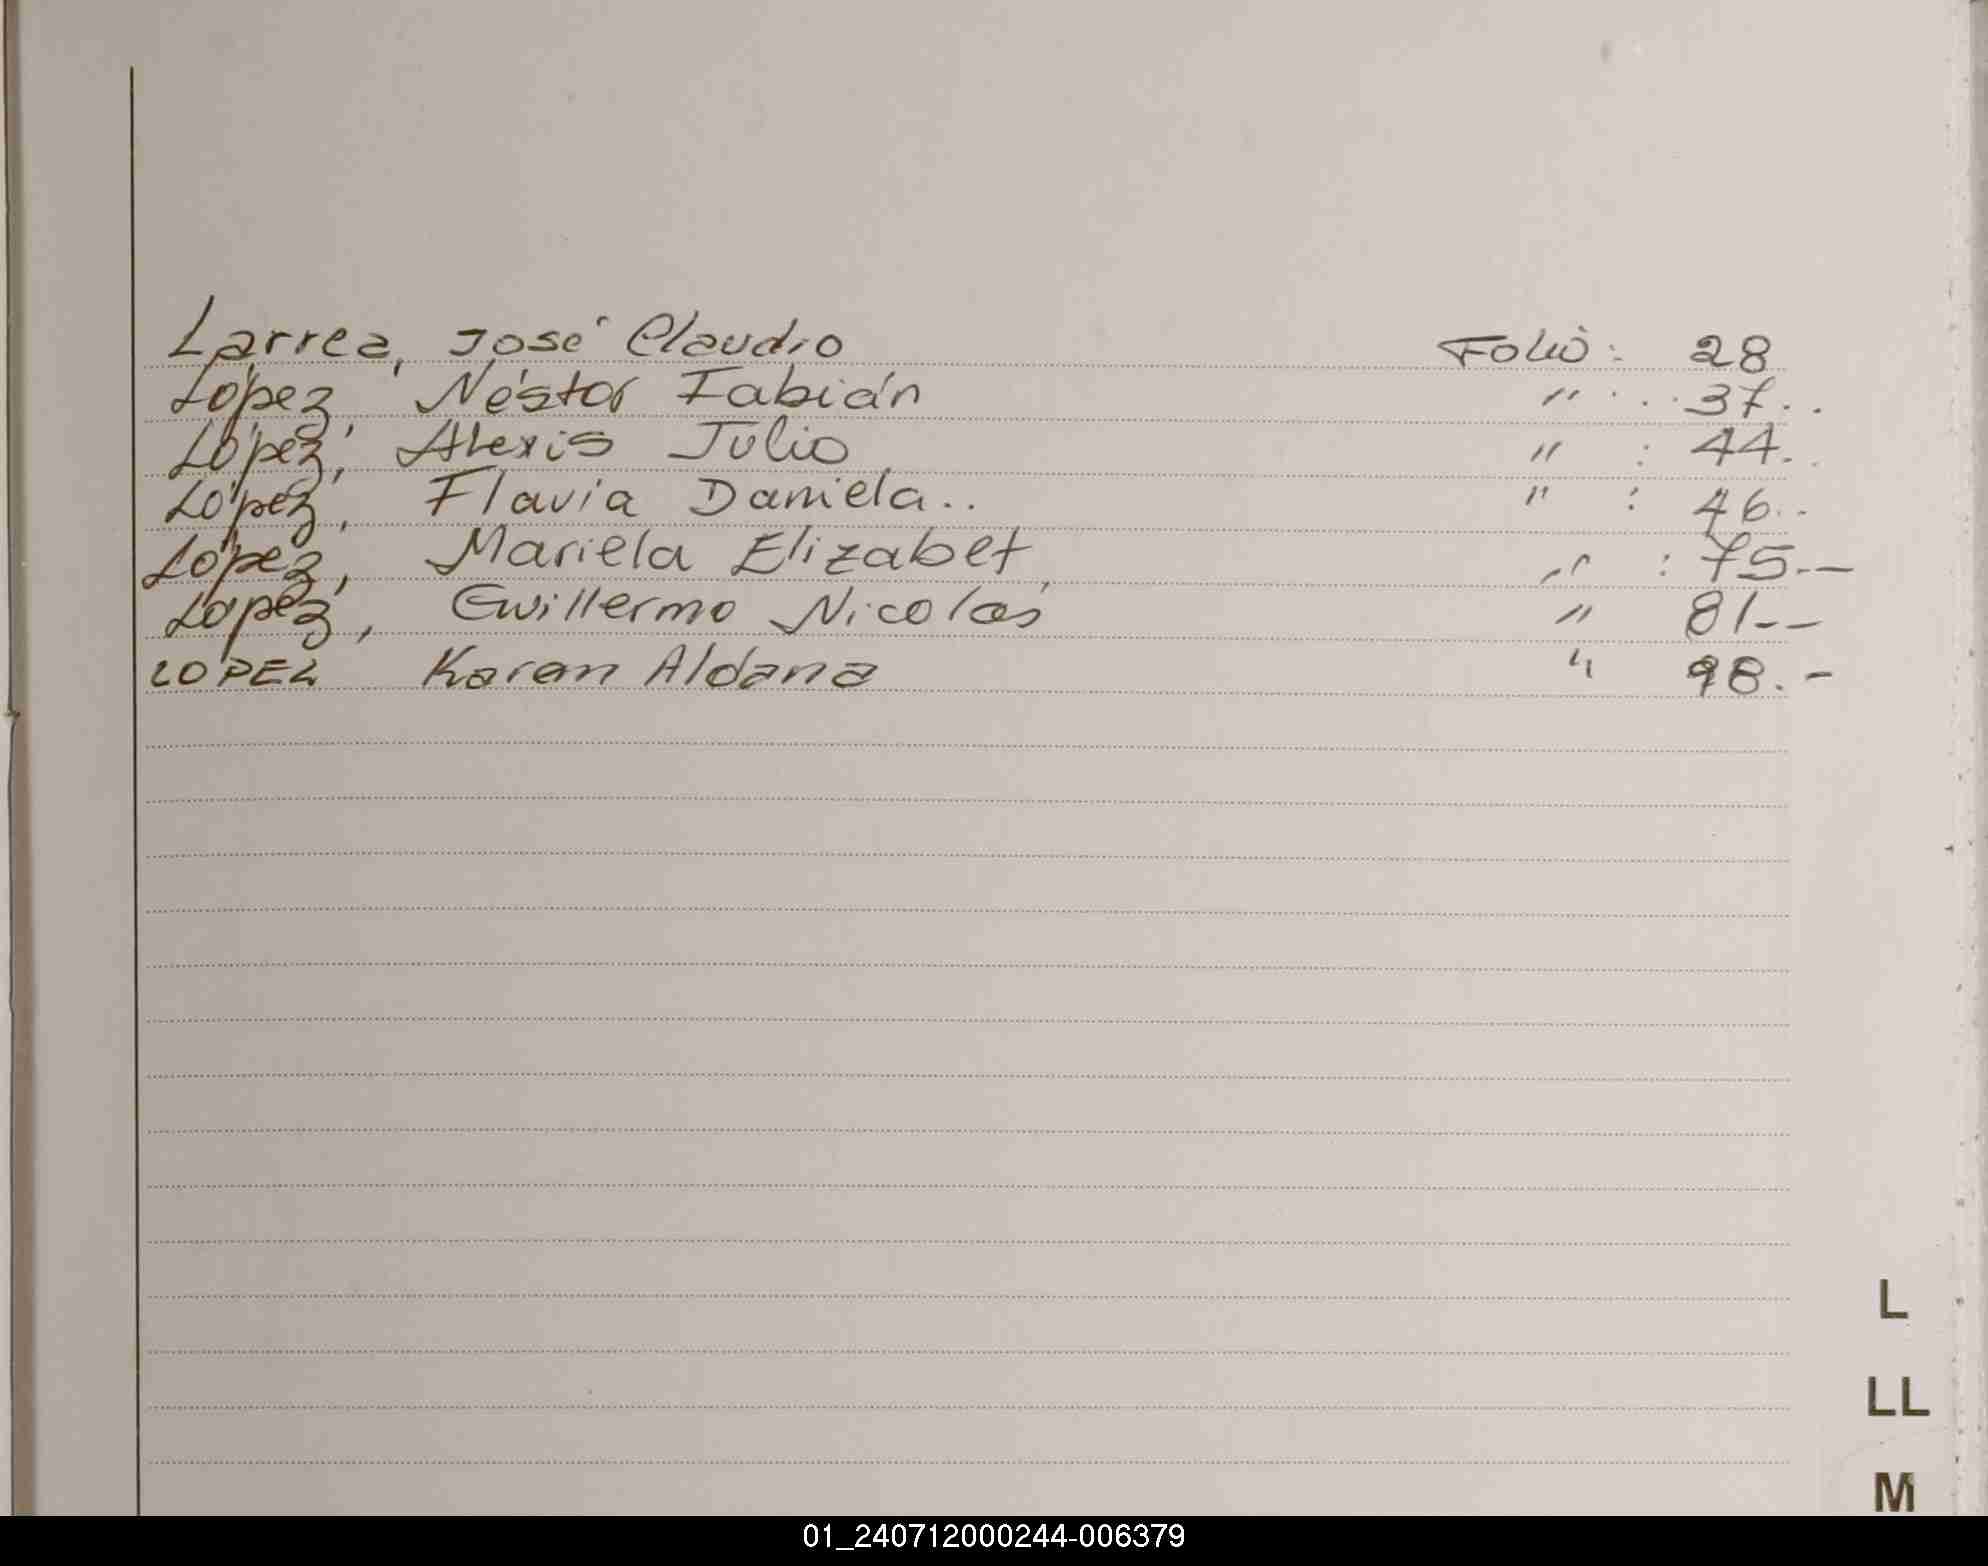 Larrea, José Claudio Folio: 28
López, Néstor Fabián " . . . 37 . .
López, Alexis Julio " : 44.
López, Flavia Daniela.. " : 46..
López, Mariela Elizabet, " : 75.--
López, Guillermo Nicolás " 81--
LOPEZ Karen Aldana " 98.-
L
LL
M
01_240712000244-006379